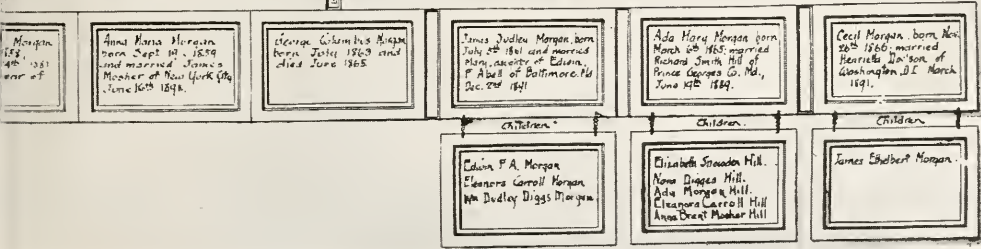 Morgan
1858
1881
Anna Maria Morgan
born Sept 19. 1859
and married James
Mosher of New York City
June 16th 189
George Columbus Morgan
born July 1863 and
died June 1865
James Dudley Morgan, born
July 5th 1861 and married
Mary, daughter of Edwin,
F Abell of Baltimore. Md
Dec. 2nd 1891
Ada Mary Morgan born
March 6th 1865; married
Richard Smith Hill of
Prince Georges Co. Md.,
June 19th 1889.
Cecil Morgan, born Nov.
26th 1866 married
Henrietta of
Washington, D.C March
1891.
Children
Children.
Children.
Edwin F A. Morgan
Eleanora Carroll Morgan
Wm Dudley Diggs Morgan
Elizabeth Snowden Hill.
Nora Digges Hill.
Ada Morgan Hill.
Eleanora Carroll Hill
Anna Brent Mosher Hill
James Ethelbert Morgan.